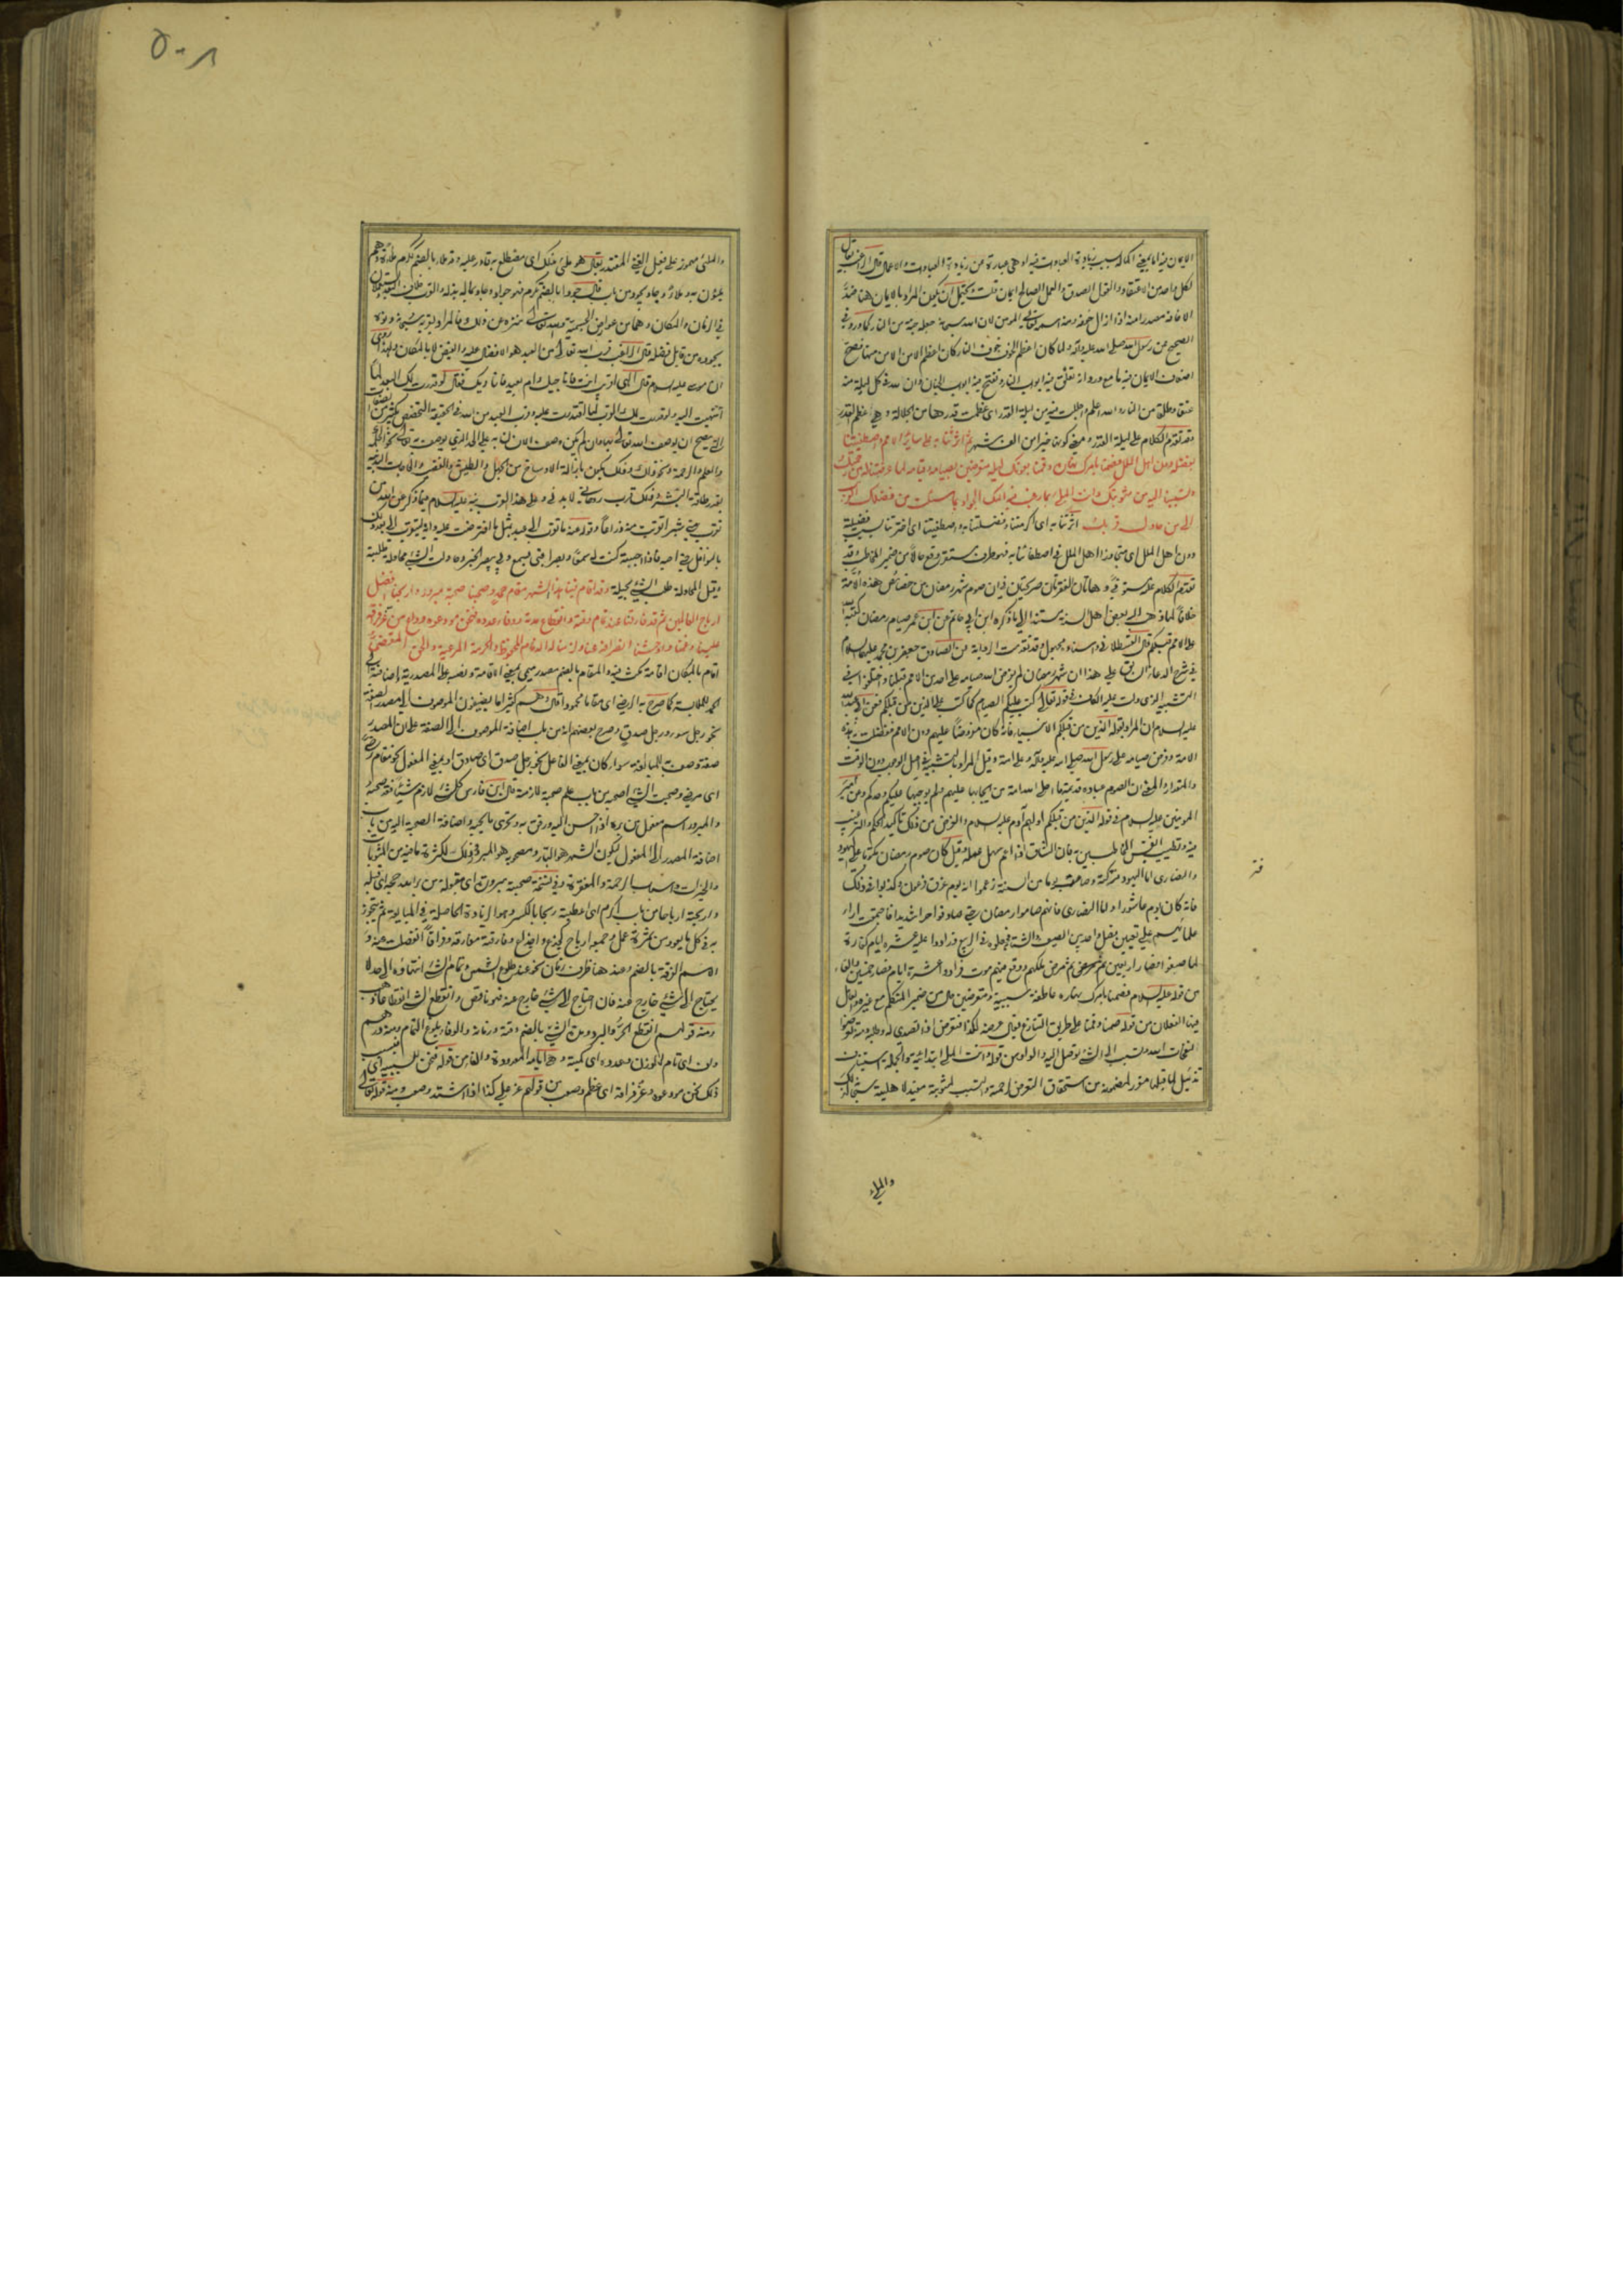 ٥٠٨
الايمان فيه اما بمعنى اكماله بسبب زيادة العبادات فيه او هي عبارة عن زيادة العبادات والاعمال قال الراغب يقال
لكل واحد من الاعتقاد والقول الصدق والعمل الصالح ايمان قلت ويحتمل ان يكون المراد بالايمان هنا ضد
الاخافة مصدر امنه اذا ازال خوفه ومنه اسمه تعالى المومن لان الله سبحانه جعله جنة من النار كما ورد في
الصحيح عن رسول الله صلى الله عليه وآله ولما كان اعظم الخوف خوف النار كان اعظم الامن الامن منها فصح
اضعاف الايمان فيه ما مع ورد انه تغلق فيه ابواب النار وتفتح فيه ابواب الجنان وان لله في كل ليلة منه
عتقاء وطلقاء من النار والله اعلم واجللت فيه من ليلة القدر اى عظمت قدرها من الجلالة وهي عظم القدر
وقد تقدم الكلام على ليلة القدر ومعنى كونها خيرا من الف شهر ثم اثرتنا به على سائر الامم واصطفيتنا
بفضله دون اهل الملل فصمنا بامرك نهاره وقمنا بعونك ليله متعرضين بصيامه وقيامه لما عرضتنا له من رحمتك
وتسببنا اليه من مثوبتك وانت الملئ بما رغب فيه اليك الجواد بما سئلت من فضلك القريب
الى من حاول قربك اثرتنا به اى اكرمتنا وفضلتنا به واصطفيتنا اى اخترتنا بسبب فضيلته
دون اهل الملل اى متجاوزا اهل الملل في اصطفائنا به فهو ظرف مستقر وقع حالا من ضمير المخاطب وقد
تقدم الكلام عليه مستوفى وهاتان الفقرتان صريحتان في ان صوم شهر رمضان من خصائص هذه الامة
خلافا لما ذهب اليه بعض اهل السنة مستندا الى ما ذكره ابن ابي حاتم عن ابن عمر صيام رمضان كتبه الله
على الامم قبلكم قال القسطلاني وفي اسناده مجهول وقد تقدمت الرواية عن الصادق جعفر بن محمد عليهما السلام
في شرح الدعاء السابق على هذا ان شهر رمضان لم يفرض الله صيامه على احد من الامم قبلنا واختلفوا في
التشبيه الذي دلت عليه الكاف في قوله تعالى كتب عليكم الصيام كما كتب على الذين من قبلكم فعن ابي عبد الله
عليه السلام ان المراد بقوله الذين من قبلكم الانبياء فانه كان مفروضا عليهم دون الامم ففضلت به هذه
الامة وفرض صيامه على رسول الله صلى الله عليه وآله وعلى امته وقيل المراد بالتشبيه في اصل الوجوب دون الوقت
والمقدار والمعنى ان الصوم عبادة قديمة ما اخلى الله امة من ايجابها عليهم ولم يوجبها عليكم وحدكم وعن امير
المومنين عليه السلام في قوله الذين من قبلكم اولهم آدم عليه السلام والغرض من ذلك تاكيد الحكم والترغيب
فيه وتطييب انفس المخاطبين به فان الشاق اذا عم سهل عمله وقيل كان صوم رمضان مكتوبا على اليهود
والنصارى اما اليهود فتركته وصامت يوما من السنة زعموا انه يوم غرق فرعون وكذبوا في ذلك
فانه كان يوم عاشوراء واما النصارى فانهم صاموا رمضان حتى صادفوا حرا شديدا فاجتمعت اراء
علمائهم على تعيين فصل واحد بين الصيف والشتاء فجعلوه في الربيع وزادوا عليه عشرة ايام كفارة
لما صنعوا فصار اربعين ثم مرض ملكهم ووقع فيهم موت فزادوا عشرة ايام فصار خمسين والفاء
من قوله عليه السلام فصمنا بامرك نهاره عاطفة سببية ومتعرضين حال من ضمير المتكلم مع غيره والعامل
فيها الفعلان من قوله صمنا وقمنا على طريق التنازع يقال عرضه لكذا فتعرض اذا تصدى له وطلبه ومنه تعرضوا
لنفحات الله وتسبب الى الشئ توصل اليه والواو من قوله وانت الملئ ابتدائية والجملة استيناف
تذييل لما قبلها مقرر لمضمونه من استحقاق التعرض لرحمته والتسبب لمثوبته مفيد لاهليته سبحانه لذلك
والملئ
والملئ مهموز على فعيل الغني المقتدر يقال هو ملئ بذلك اى مضطلع به قادر عليه وقد ملاء بالضم ككرم ملاءة وهم
مليئون به وملآء وجاد يجود من باب قال جودا بالضم تكرم فهو جواد وجاد بماله بذله والقرب خلاف البعد يستعملان
في الزمان والمكان وهما من عوارض الجسمية والله تعالى منزه عن ذلك فالمراد بقربه سبحانه دنوه
بجوده من قابل فضله قال الراغب قرب الله تعالى من العبد هو الافضال عليه والفيض لا بالمكان ولهذا روى
ان موسى عليه السلام قال الهى اقريب انت فاناجيك ام بعيد فاناديك فقال لو قدرت لك البعد لما
انتهيت اليه ولو قدرت لك القرب لما اقتدرت عليه وقرب العبد من الله في الحقيقة التخصيص بكثير من الصفات
التي يصح ان يوصف الله تعالى بها وان لم يكن وصف الانسان به على الحد الذي يوصف به تعالى نحو الحكمة
والعلم والرحمة ونحو ذلك وذلك يكون بازالة الاوساخ من الجهل والطيش والغضب والحاجات البدنية
بقدر طاقة البشر وذلك قرب روحاني لا بدني وعلى هذا القرب نبه عليه السلام فيما ذكر عن الله من
تقرب مني شبرا تقربت منه ذراعا وقوله عنه ما تقرب الى عبد بمثل ما افترضت عليه وانه ليتقرب الى بعد ذلك
بالنوافل حتى احبه فاذا احببته كنت له سمعا وبصرا فبي يسمع وبي يبصر الخبر وحاولت الشئ محاولة طلبته
وقيل المحاولة طلب الشئ بحيلة وقد اقام فينا هذا الشهر مقام حمد وصحبنا صحبة مبرور واربحنا افضل
ارباح العالمين ثم قد فارقنا عند تمام وقته وانقطاع مدته ووفاء عدده فنحن مودعوه وداع من عز فراقه
علينا وغمنا واوحشنا انصرافه عنا ولزمنا له الذمام المحفوظ والحرمة المرعية والحق المقضي
اقام بالمكان اقامة مكث فيه والمقام بالضم مصدر ميمي بمعنى الاقامة ونصبه على المصدرية واضافته الى
الحمد للملابسة كما صرح به الرضي اى مقاما محمودا قال وهم كثيرا ما يضيفون الموصوف الى مصدر الصفة
نحو رجل سوء ورجل صدق وصرح بعضهم انه من باب اضافة الموصوف الى الصفة على ان المصدر
صفة وصف به للمبالغة سواء كان بمعنى الفاعل نحو رجل صدق اى صادق او بمعنى المفعول نحو مقام رضى
اى مرضي وصحبت الشئ اصحبه من باب علم صحبة لازمته قال ابن فارس كل شئ لازم شيئا فقد صحبه
والمبرور اسم مفعول من بره اذا احسن اليه ورفق به وتحرى ما يحبه واضافة الصحبة اليه من باب
اضافة المصدر الى المفعول ليكون الشهر هو البار ومصحوبه هو المبرور وذلك لكثرة ما فيه من المثوبات
والخيرات واسباب الرحمة والمغفرة وفي نسخة صحبة مبرورة اى مقبولة من بر الله حجه اى قبله
واربحته ارباحا من باب اكرم اى اعطيته ربحا بالكسر وهو الزيادة الحاصلة في المبايعة ثم يتجوز
به في كل ما يعود من ثمرة عمل وجمعه ارباح كجذع واجذاع وفارقته مفارقة وفراقا انفصلت عنه و
الاسم الفرقة بالضم وعند هنا ظرف زمان نحو عند طلوع الشمس وتمام الشئ انتهاؤه الى حد لا
يحتاج الى شئ خارج عنه فان احتاج الى شئ خارج عنه فهو ناقص وانقطع الشئ انقطاعا ذهب
ومنه قولهم انقطع الحر والبرد ومدة الشئ بالضم وقته وزمانه والوفاء بلوغ التمام ومنه درهم
واف اى تام الوزن وعدده اى كميته وهي ايامه المعدودة والفاء من قوله فنحن للسببية اى فبسبب
ذلك نحن مودعوه وعز فراقه اى عظم وصعب من قولهم عز علي كذا اذا اشتد وصعب ومنه قوله تعالى